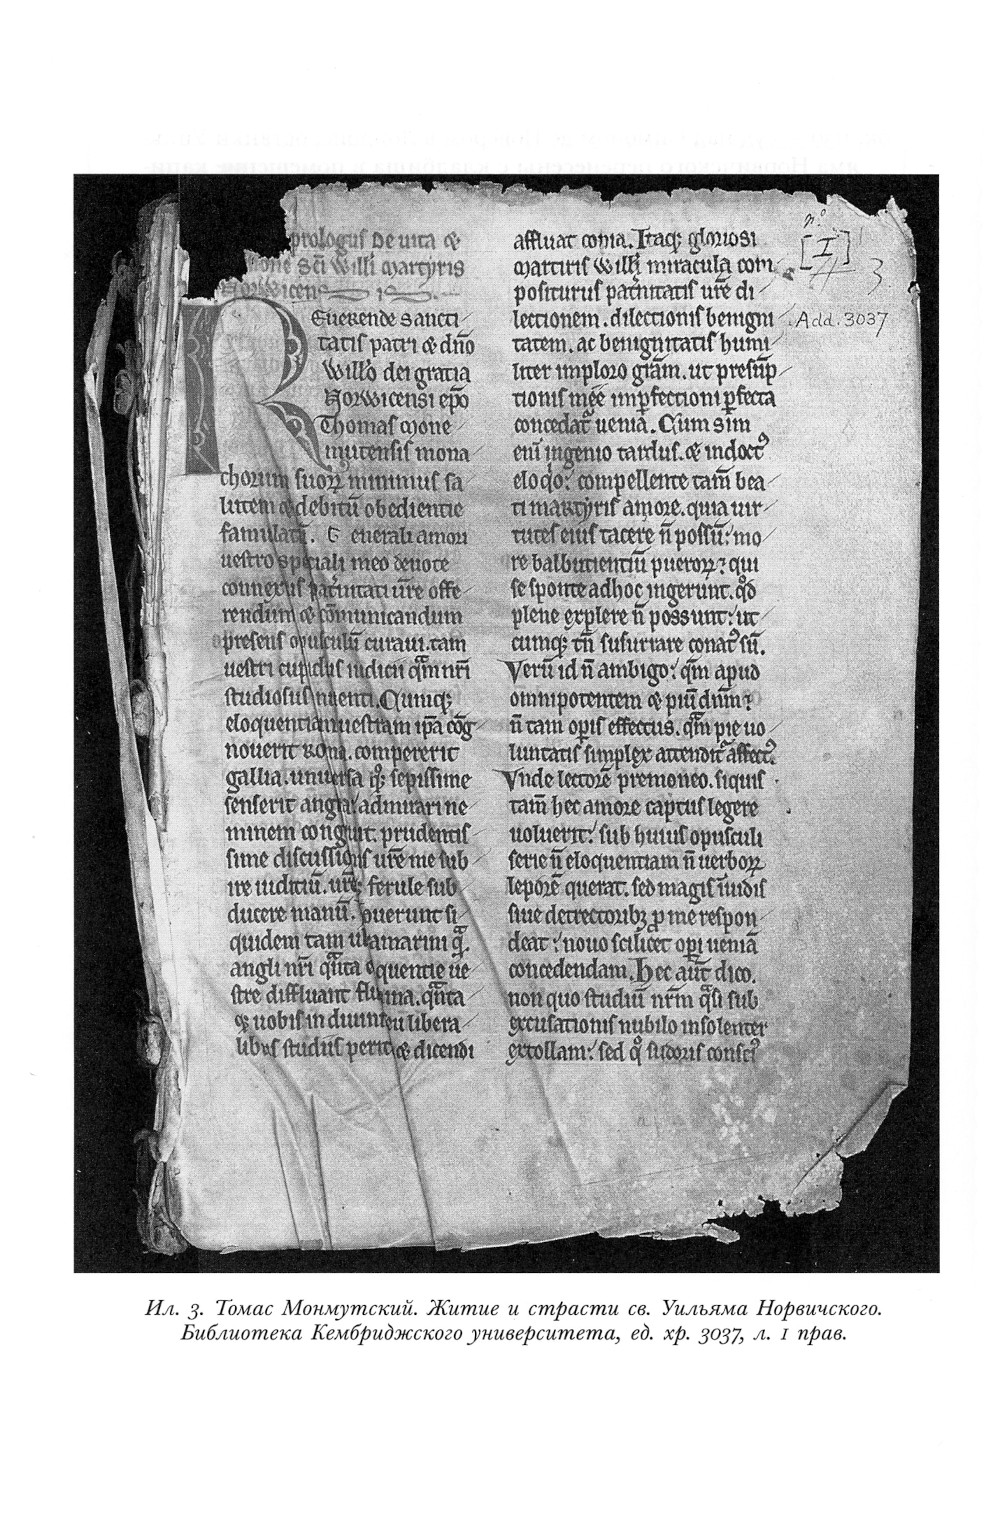 prologus de uita &
sc̄i Willi martyris
Reuerende sancti
tatis patri & dn̄o
Willo dei gratia
Norwicensi ep̄o
Thomas mone
mutensis mona
chorum suoꝝ minimus sa
lutem & debitū obedientie
famulatū. G enerali amori
uestro speciali meo deuote
connexus pat̄nitati ur̄e offe
rendum & cōmunicandum
presens opusculū curaui. tam
uestri cupidus iudicii qm̄ nr̄i
studiosus Cumq;
eloquentiam uestram ip̄a
nouerit roma. compererit
gallia. uniuersa q; sepissime
senserit anglia. admirari ne
minem congruit. prudentis
sime discussionis ur̄e me sub
ire iudiciū. ur̄e ferule sub
ducere manū. puerunt si
quidem tam
angli nr̄i qn̄ta eloquentie ue
stre diffluant flumina. qn̄ta
libus studiis & dicendi
affluat copia. Itaq; gloriosi
martiris Willi miracula com
positurus pat̄nitatis ur̄e di
lectionem. dilectionis benigni
tatem. ac benignitatis humi
liter imploro gr̄am. ut presūp
tionis mee imp̱fectioni p̱fecta
concedat᷑ uenia. Cum sim
eni ingenio tardus. & indoctꝰ
eloq̊o: compellente tam̄ bea
ti martyris amore. quia uir
tutes eius tacere n̄ possū: mo
re balbutientiū pueroꝝ: qui
se sponte adhoc ingerunt. qd̄
plene explere n̄ possunt: ut
cumq; tn̄ susurrare conatꝰ sū.
Verū id n̄ ambigo: qm̄ apud
omnipotentem & piū dn̄m:
n̄ tam op̱is effectus. qm̄ pie uo
luntatis simplex attendit᷑ affectꝰ.
Vnde lectorē premoneo. siquis
tam̄ hec amore captus legere
uoluerit: sub huius opusculi
serie n̄ eloquentiam n̄ uerboꝝ
leporē querat. sed magis inuidis
siue detrectoribꝫ p̱ me respon
deat: nouo scilicet op̱i ueniā
concedendam. Hec aut̄ dico.
non quo studiū nr̄m q̄si sub
excusationis nubilo insolenter
extollam: sed q̊ sudoris consciꝰ
nº
[I]
3
Add. 3037
Ил. 3. Томас Монмутский. Житие и страсти св. Уильяма Норвичского.
Библиотека Кембриджского университета, ед. хр. 3037, л. 1 прав.